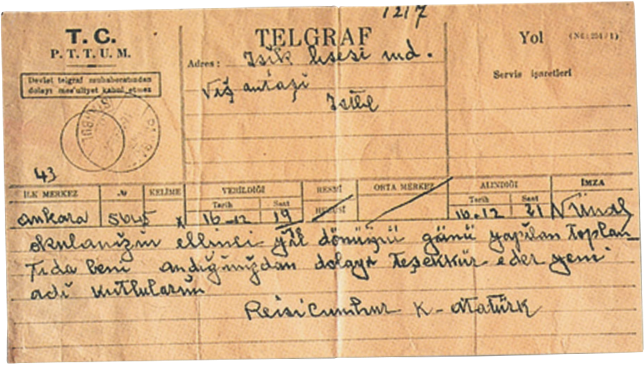 1217
T. C.
P. T. T. U. M.
Devlet telgraf muhaberatından
dolayı mes'uliyet kabul etmez
TELGRAF
Adres : Işık lisesi md.
Nişantaşı
İstbl
Yol
Servis işaretleri
ISTANBUL
43
İLK MERKEZ № KELİME VERİLDİĞİ Tarih Saat ORTA MERKEZ ALINDIĞI Tarih Saat İMZA
ankara 16-12 19 16-12 21
okulanızın ellinci yıl dönümü günü yapılan toplan-
tıda beni andığınızdan dolayı teşekkür eder yeni
adı kutlularım
Reisicumhur K. Atatürk